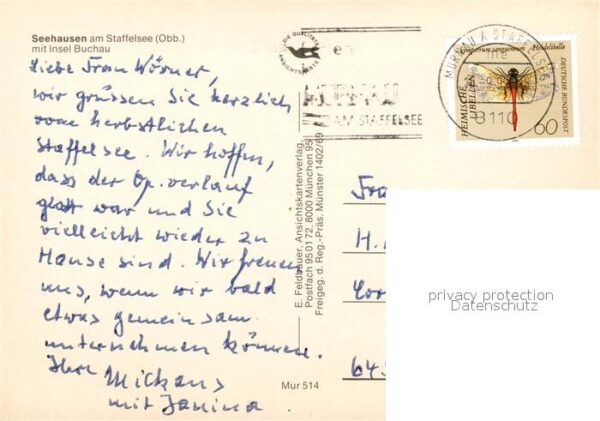 Seehausen am Staffelsee (Obb.)
mit Insel Buchau
Liebe Frau Wörner,
wir grüssen Sie herzlich
vom herbstlichen
Staffelsee. Wir hoffen,
dass der Op.verlauf
glatt war und Sie
vielleicht wieder zu
Hause sind. Wir freuen
uns, wenn wir bald
etwas gemeinsam
unternehmen können.
Ihre Mickans
mit Janina
Mur 514
E. Feldbauer, Ansichtskartenverlag,
Postfach 950172, 8000 München 95
Freigeg. d. Reg.-Präs. Münster 1402/69
DIE QUALITÄTS
ANSICHTSKARTE
MURNAU
AM STAFFELSEE
MURNAU A. STAFFELSEE
8110
Sympetrum sanguineum Heidelibelle
HEIMISCHE
LIBELLEN
DEUTSCHE BUNDESPOST
60
Frau
H.
645
privacy protection
Datenschutz